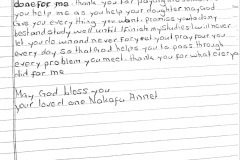 done for me. thank you for paying
you help me as you help your daughter may God
Give you every thing you want. promise you to do my
best and study well until I finish my studies I will never
let you down and never forget you I pray for you
every day so that God helps you to pass through
every problem you meet. thank you for what ever you
did for me.
May God bless you
your loved one Nakafu Annet